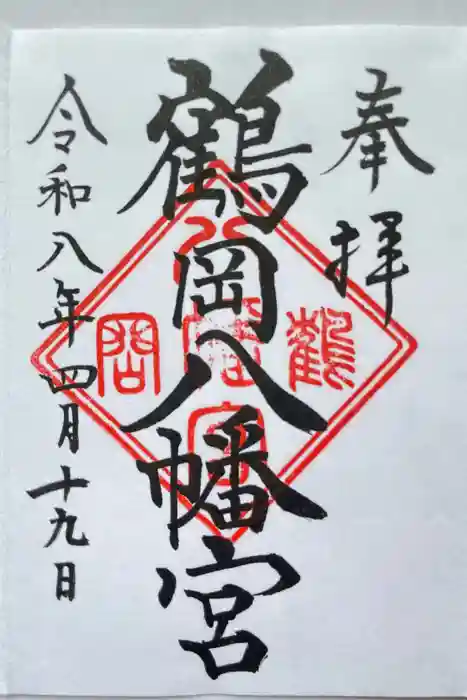 奉拝
鶴岡八幡宮
令和八年四月十九日
鶴
岡
八
幡
宮